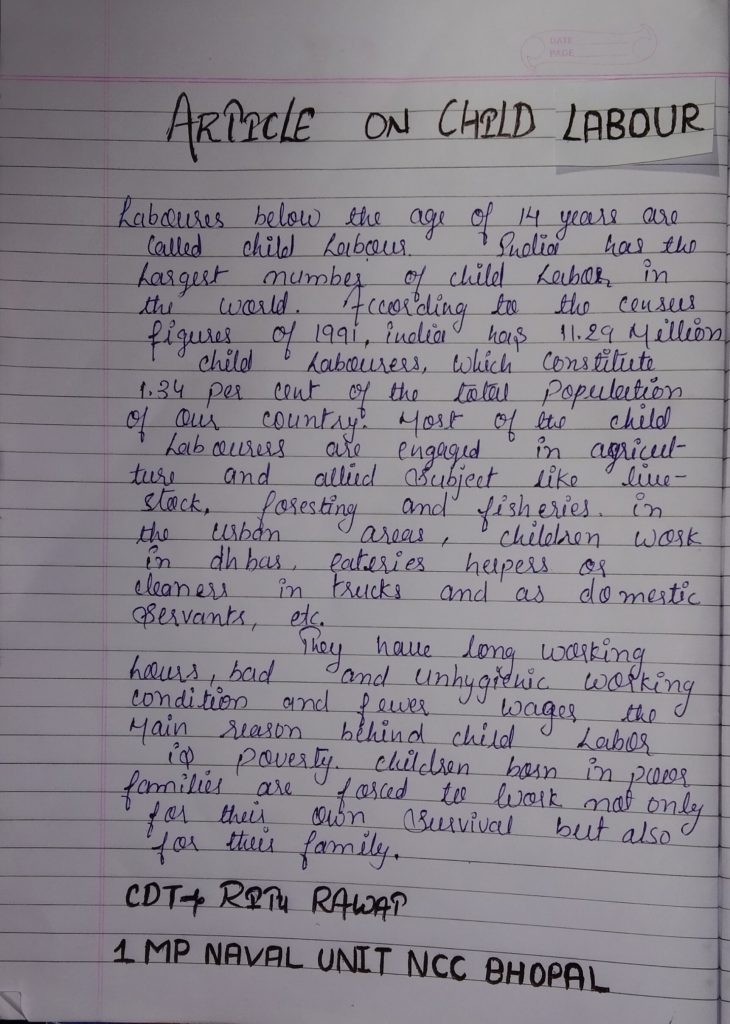 DATE
PAGE
ARTICLE ON CHILD LABOUR
Labourers below the age of 14 years are
called child Labour. India has the
Largest number of child Labor in
the world. According to the census
figures of 1991, india has 11.29 Million
child Labourers, which constitute
1.34 per cent of the total population
of our country. Most of the child
Labourers are engaged in agricul-
ture and allied Subject like live-
stock, foresting and fisheries. in
the urban areas, children work
in dhbas, eateries helpers or
cleaners in trucks and as domestic
Servants, etc.
They have long working
hours, bad and unhygienic working
condition and fewer wages the
Main reason behind child Labor
is poverty. children born in poor
families are forced to work not only
for their own Survival but also
for their family.
CDT → RITU RAWAT
1 MP NAVAL UNIT NCC BHOPAL